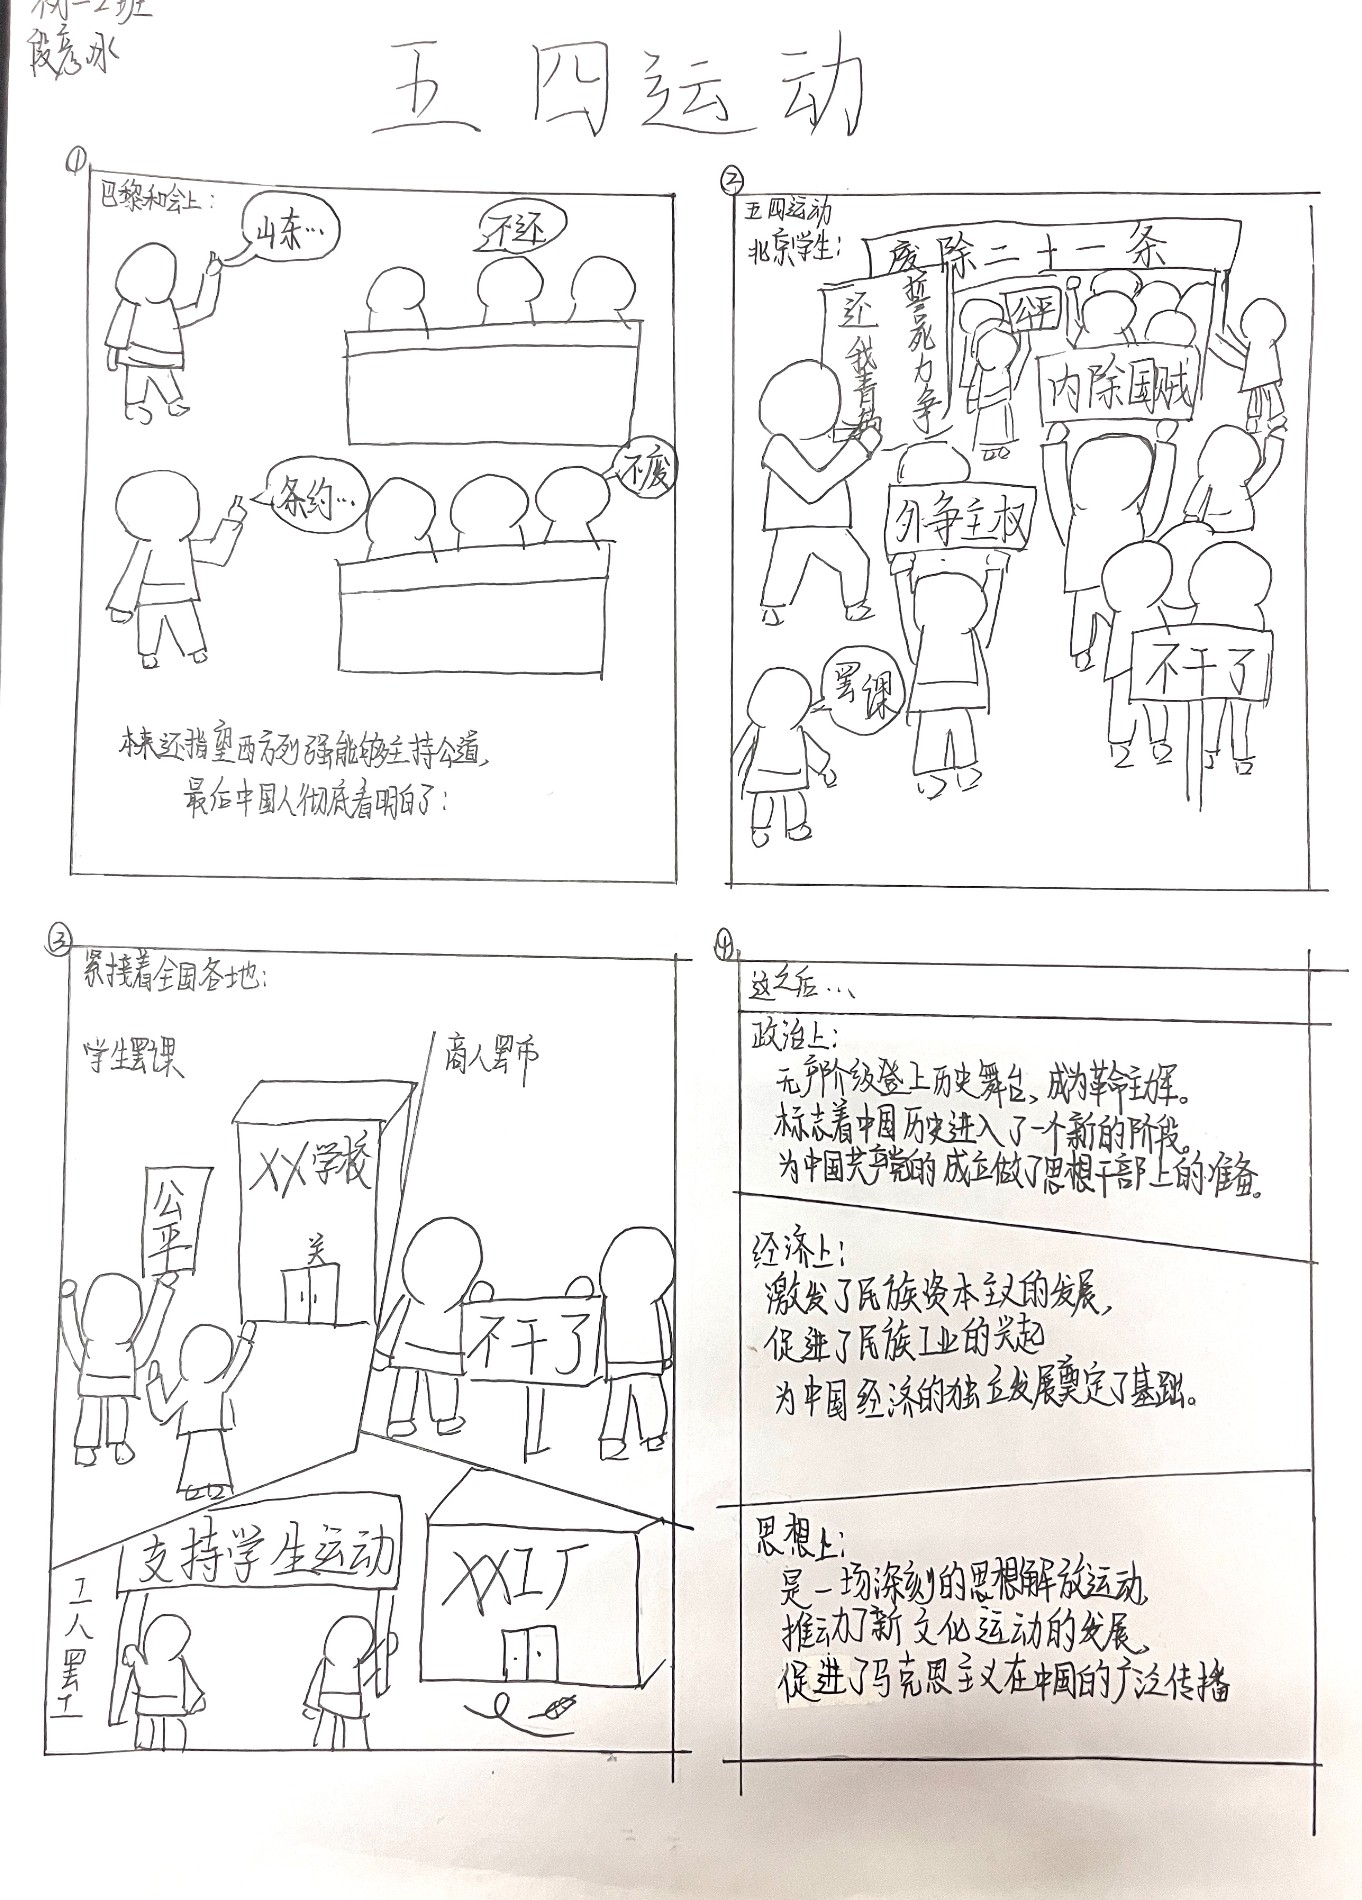 初一2班
段彦冰
五四运动
①
巴黎和会上：
山东…
不还
条约…
不废
本来还指望西方列强能够主持公道，
最后中国人彻底看明白了：
②
五四运动
北京学生：
废除二十一条
誓死力争
还我青岛
公平
内除国贼
外争主权
不干了
罢课
③
紧接着全国各地：
学生罢课
商人罢市
XX学校
关
公平
不干了
支持学生运动
工人罢工
XX工厂
④
这之后…
政治上：
无产阶级登上历史舞台、成为革命主力军。
标志着中国历史进入了一个新的阶段。
为中国共产党的成立做了思想干部上的准备。
经济上：
激发了民族资本主义的发展，
促进了民族工业的兴起
为中国经济的独立发展奠定了基础。
思想上：
是一场深刻的思想解放运动，
推动了新文化运动的发展、
促进了马克思主义在中国的广泛传播